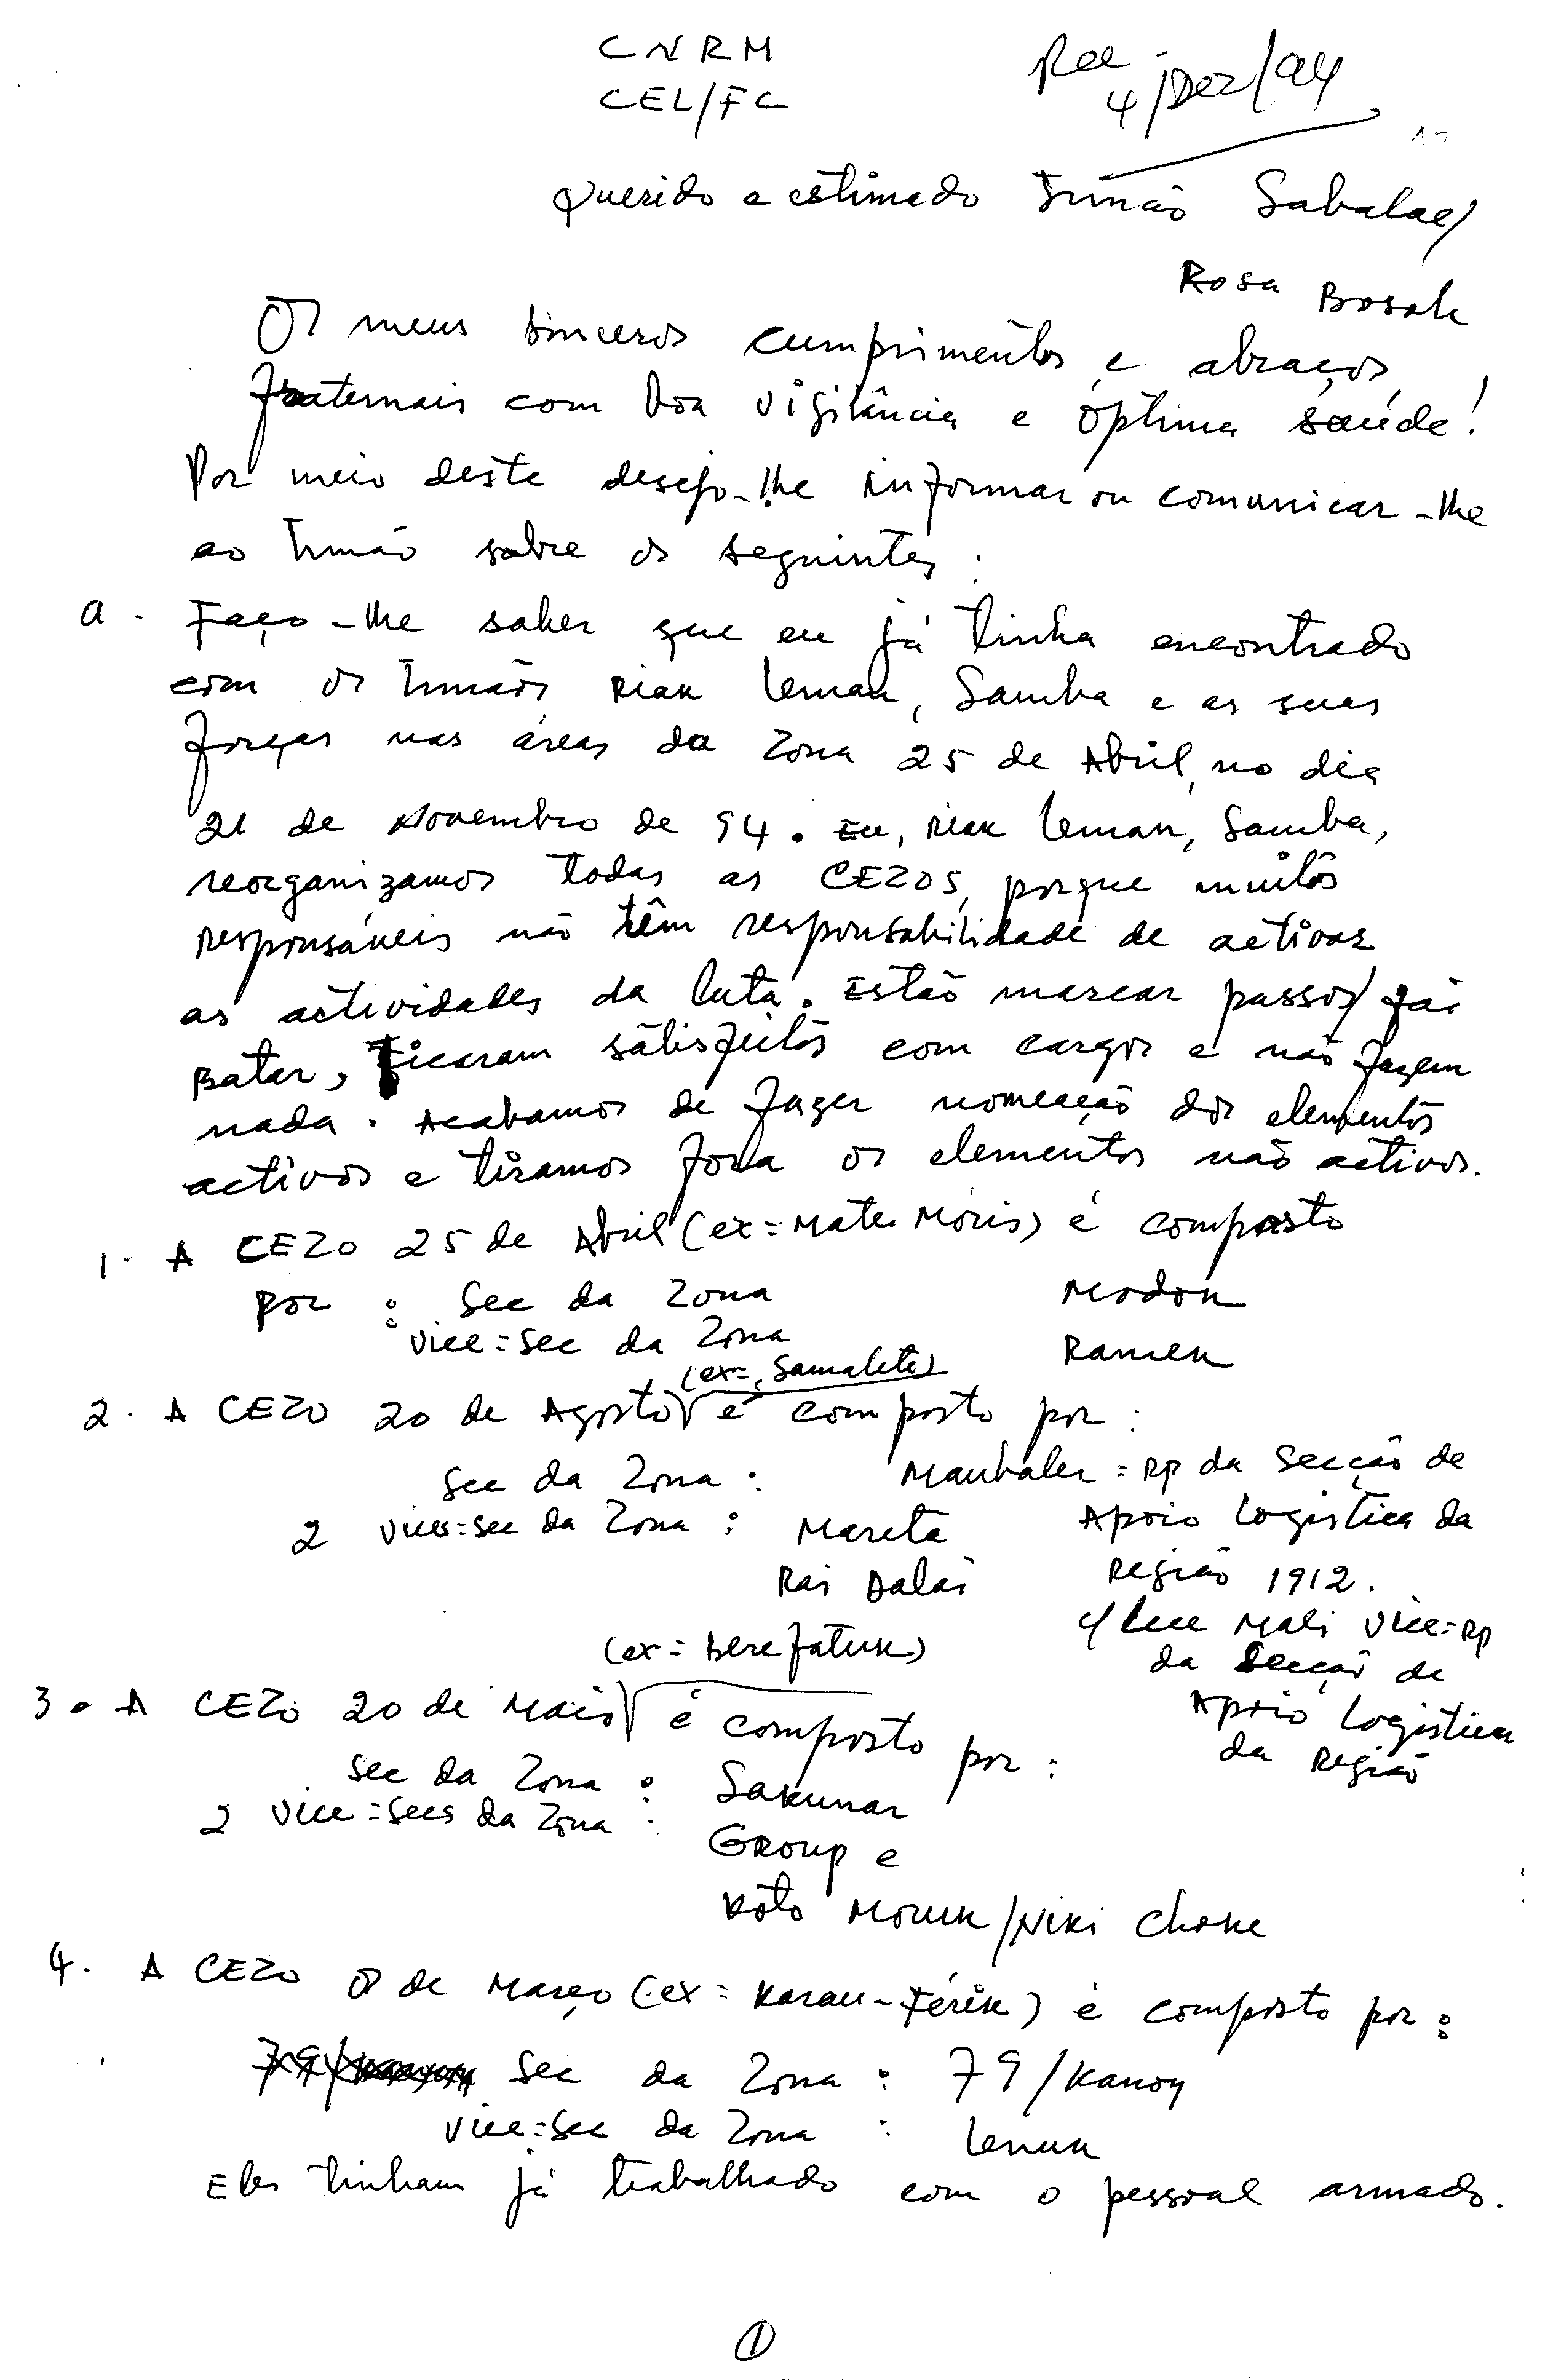 CNRM
CEL/FC
Rec
4/Dez/94
Querido e estimado Irmão Sabalae/
Rosa Bosak
Os meus sinceros cumprimentos e abraços
fraternais com boa vigilância e óptima saúde!
Por meio deste desejo-lhe informar ou comunicar-lhe
ao Irmão sobre os seguintes:
a. Faço-lhe saber que eu já tinha encontrado
com os Irmãos Riak Leman, Samba e as suas
forças nas áreas da Zona 25 de Abril, no dia
21 de Novembro de 94. Eu, Riak Leman, Samba,
reorganizamos todas as CEZOS, porque muitos
responsáveis não têm responsabilidade de activar
as actividades da luta. Estão marcar passos/
Batar, Ficaram satisfeitos com cargos e não fazem
nada. Acabamos de fazer nomeação dos elementos
activos e tiramos fora os elementos não activos.
1. A CEZO 25 de Abril (ex=Mate Moris) é composto
por : Sec da Zona Modok
Vice=Sec da Zona Ramek
(ex=Samalete)
2. A CEZO 20 de Agosto é composto por:
Sec da Zona: Maubaler = Rp da Secção de
Apoio Logística da
Região 1912.
2 Vices=sec da Zona : Mareta
Rai Dalai
c/ Leee Mali Vice=Rp
da Secção de
Apoio Logística
da Região
(ex=Bere Fatuk)
3. A CEZO 20 de Maio é composto por:
Sec da Zona : Sakunar
2 Vice=Secs da Zona : Group e
Koto Moruk/Niki Choke
4. A CEZO 8 de Março (ex=Karau-Férik) é composto por:
Sec da Zona : 79/Kanoy
Vice=Sec da Zona : Lenuk
Eles tinham já trabalhado com o pessoal armado.
1